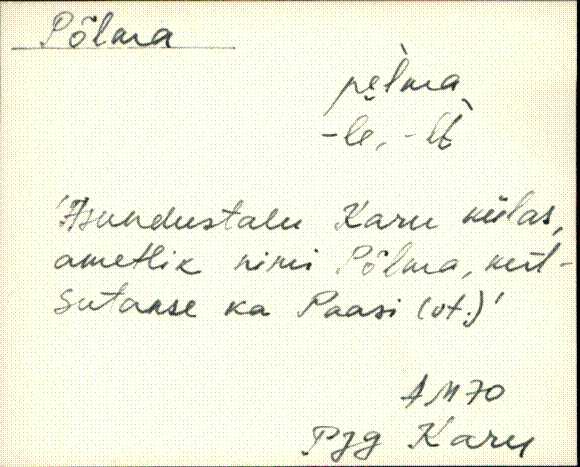 Põlma
pe̬lma
-le, -lt
'Asundustalu Karu külas,
ametlik nimi Põlma, küt-
sutakse ka Paasi (vt.)'
AM70
Pjg Karu